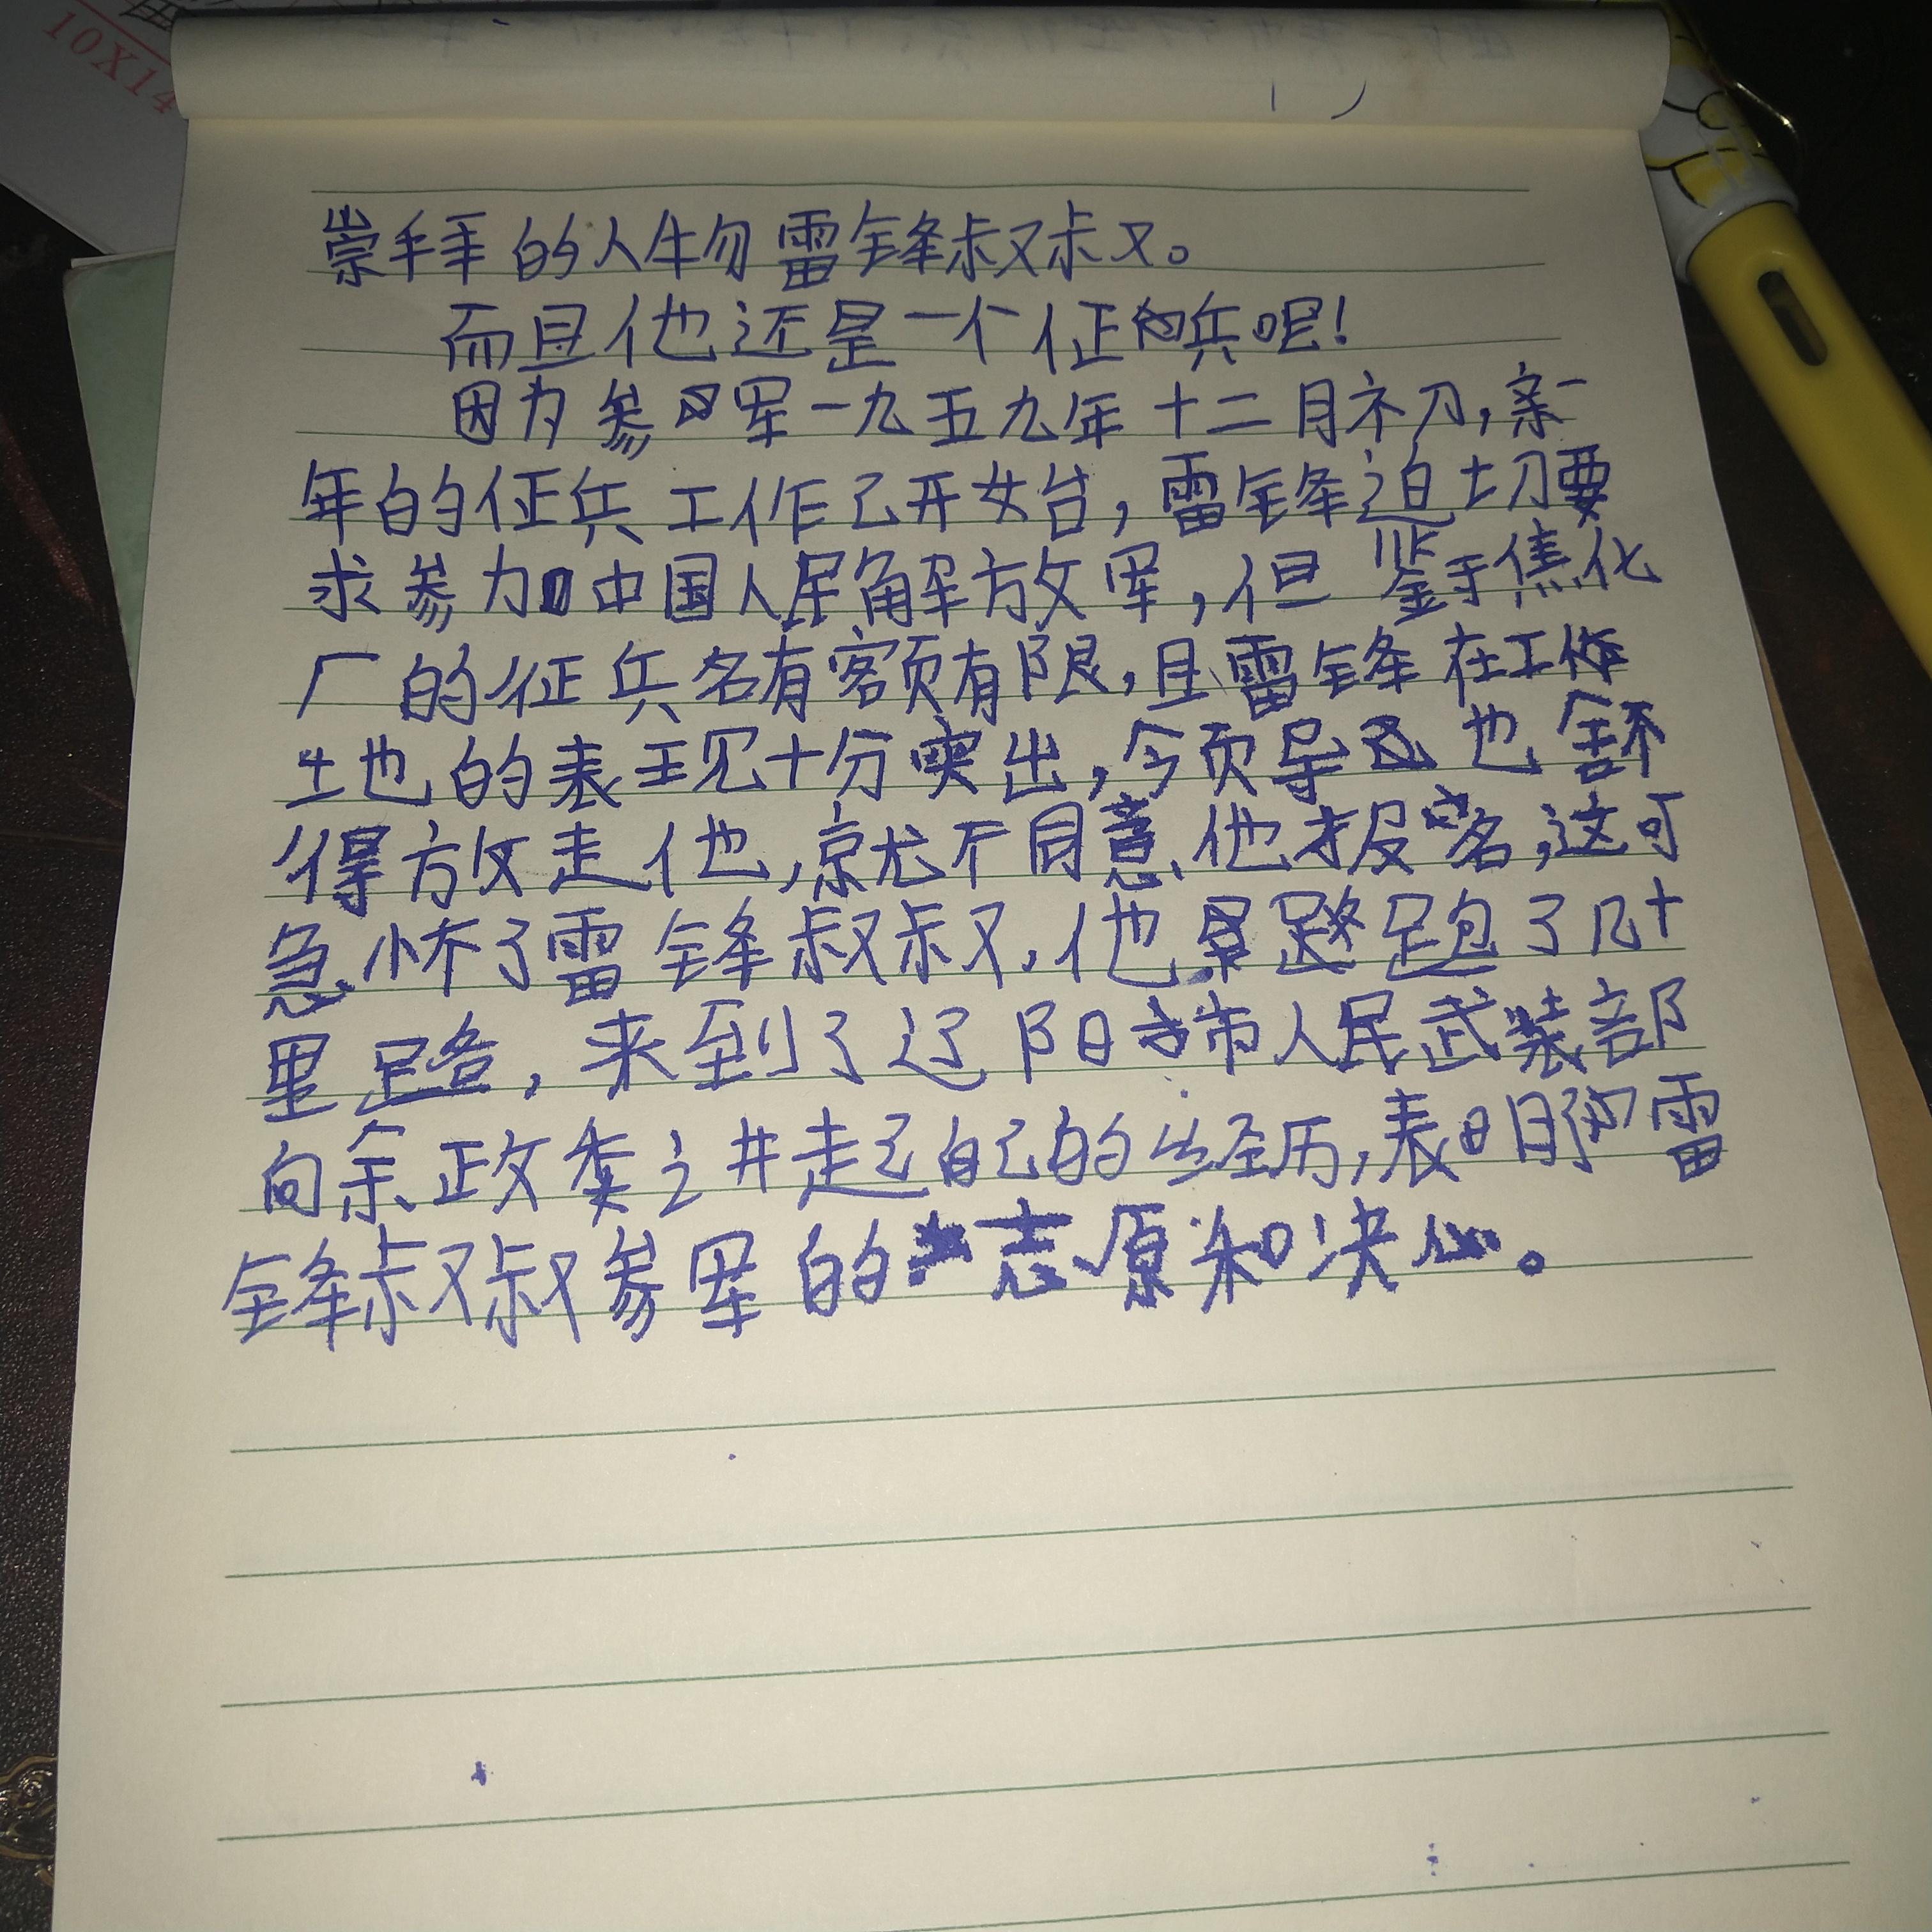 10X14
崇拜的人物雷锋叔叔。
而且他还是一个征兵呢!
因为参军一九五九年十二月初,新一
年的征兵工作已开始,雷锋迫切要
求参加中国人民解放军,但鉴于焦化
厂的征兵名有客额有限,且雷锋在工作
地的表现十分突出,领导也舍不
得放走他,就不同意他报名,这可
急坏了雷锋叔叔,他跑了几十
里路,来到了辽阳市人民武装部
向余政委讲起自己的经历,表明雷
锋叔叔参军的志愿和决心。